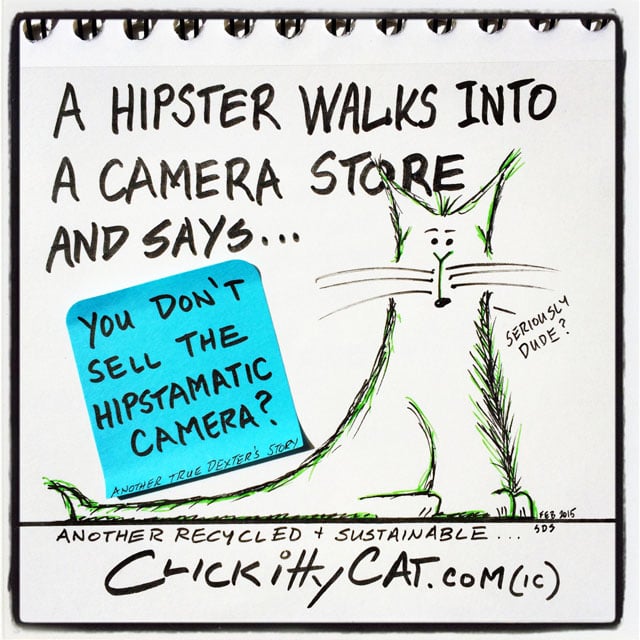 A HIPSTER WALKS INTO
A CAMERA STORE
AND SAYS...
YOU DON'T
SELL THE
HIPSTAMATIC
CAMERA?
ANOTHER TRUE DEXTER'S STORY
SERIOUSLY
DUDE?
FEB 2015
SDS
ANOTHER RECYCLED + SUSTAINABLE...
CLICKittyCAT.COM(IC)